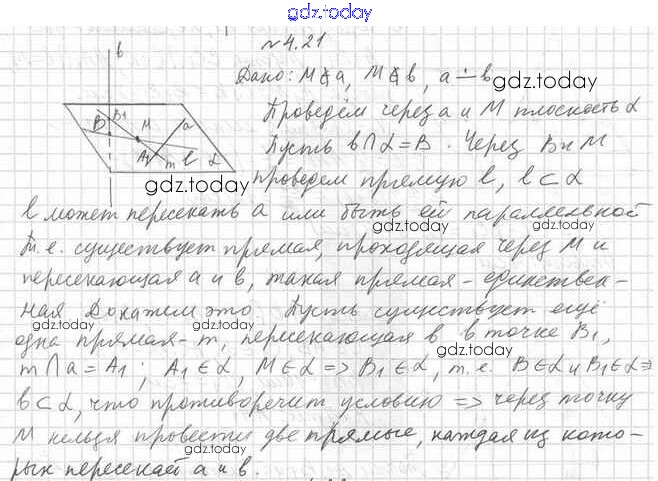 gdz.today
№4.21
Дано: M∉a, M∉b, a ∸ b
gdz.today
Проведём через a и M плоскость α
Пусть b∩α=B. Через B и M
gdz.today
проведем прямую l, l⊂α
l может пересекать a или быть ей параллельной
Т.е. существует прямая, проходящая через M и
gdz.today
пересекающая a и b, такая прямая - единствен-
ная Докажем это. Пусть существует ещё
gdz.today
одна прямая - m, пересекающая b в точке B₁,
m∩a=A₁; A₁∈α, M∈α => B₁∈α, т.е. B∈α и B₁∈α =>
b⊂α, что противоречит условию => через точку
gdz.today
M нельзя провести две прямые, каждая из кото-
рых пересекай a и b.
b
B₁
B
M
a
A₁
m
l
α